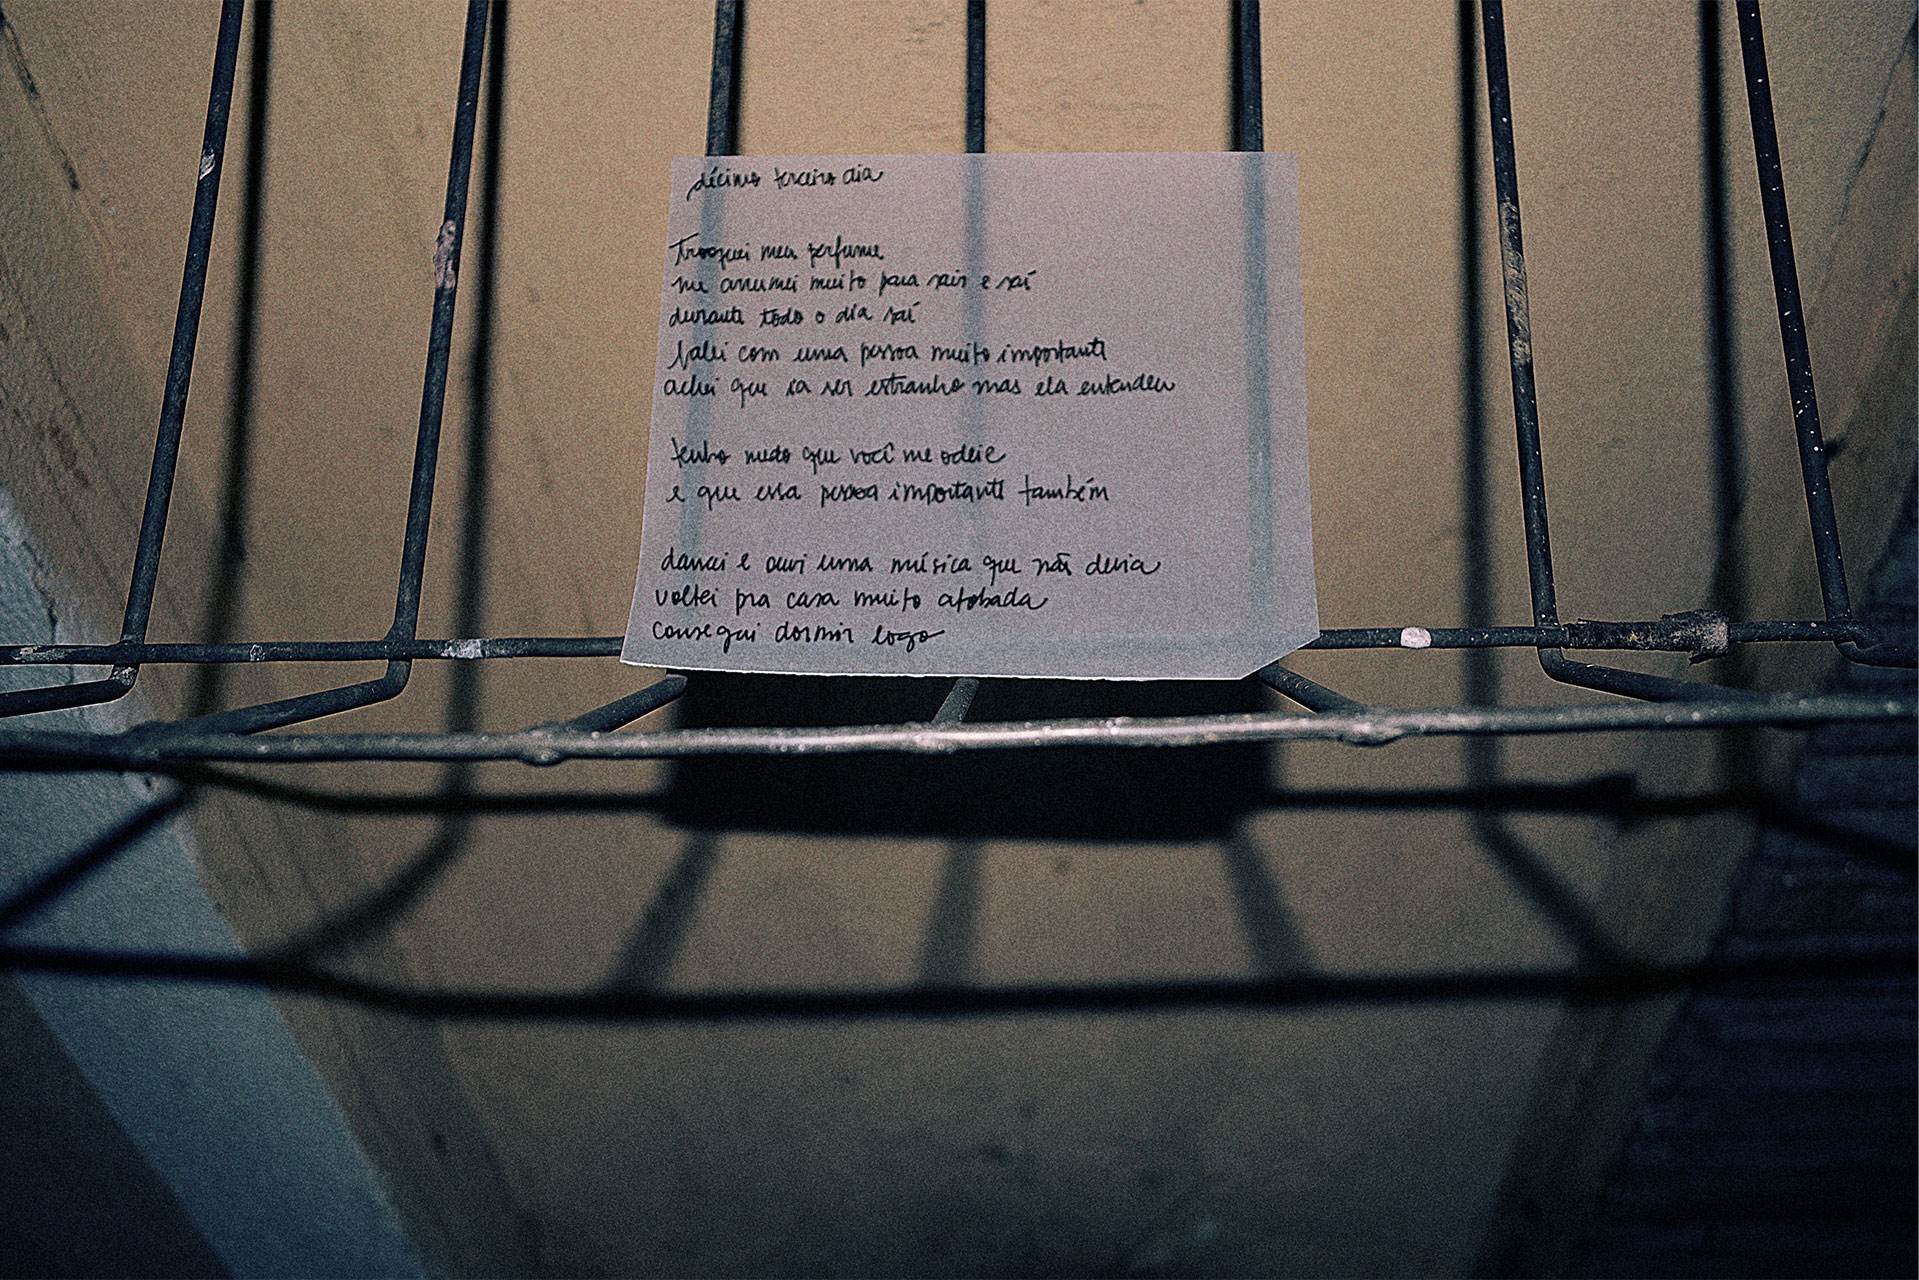 décimo terceiro dia
Troquei meu perfume
me arrumei muito para sair e saí
durante todo o dia saí
falei com uma pessoa muito importante
achei que ia ser estranho mas ela entendeu
tenho medo que você me odeie
e que essa pessoa importante também
dancei e ouvi uma música que não devia
voltei pra casa muito atobada
consegui dormir logo